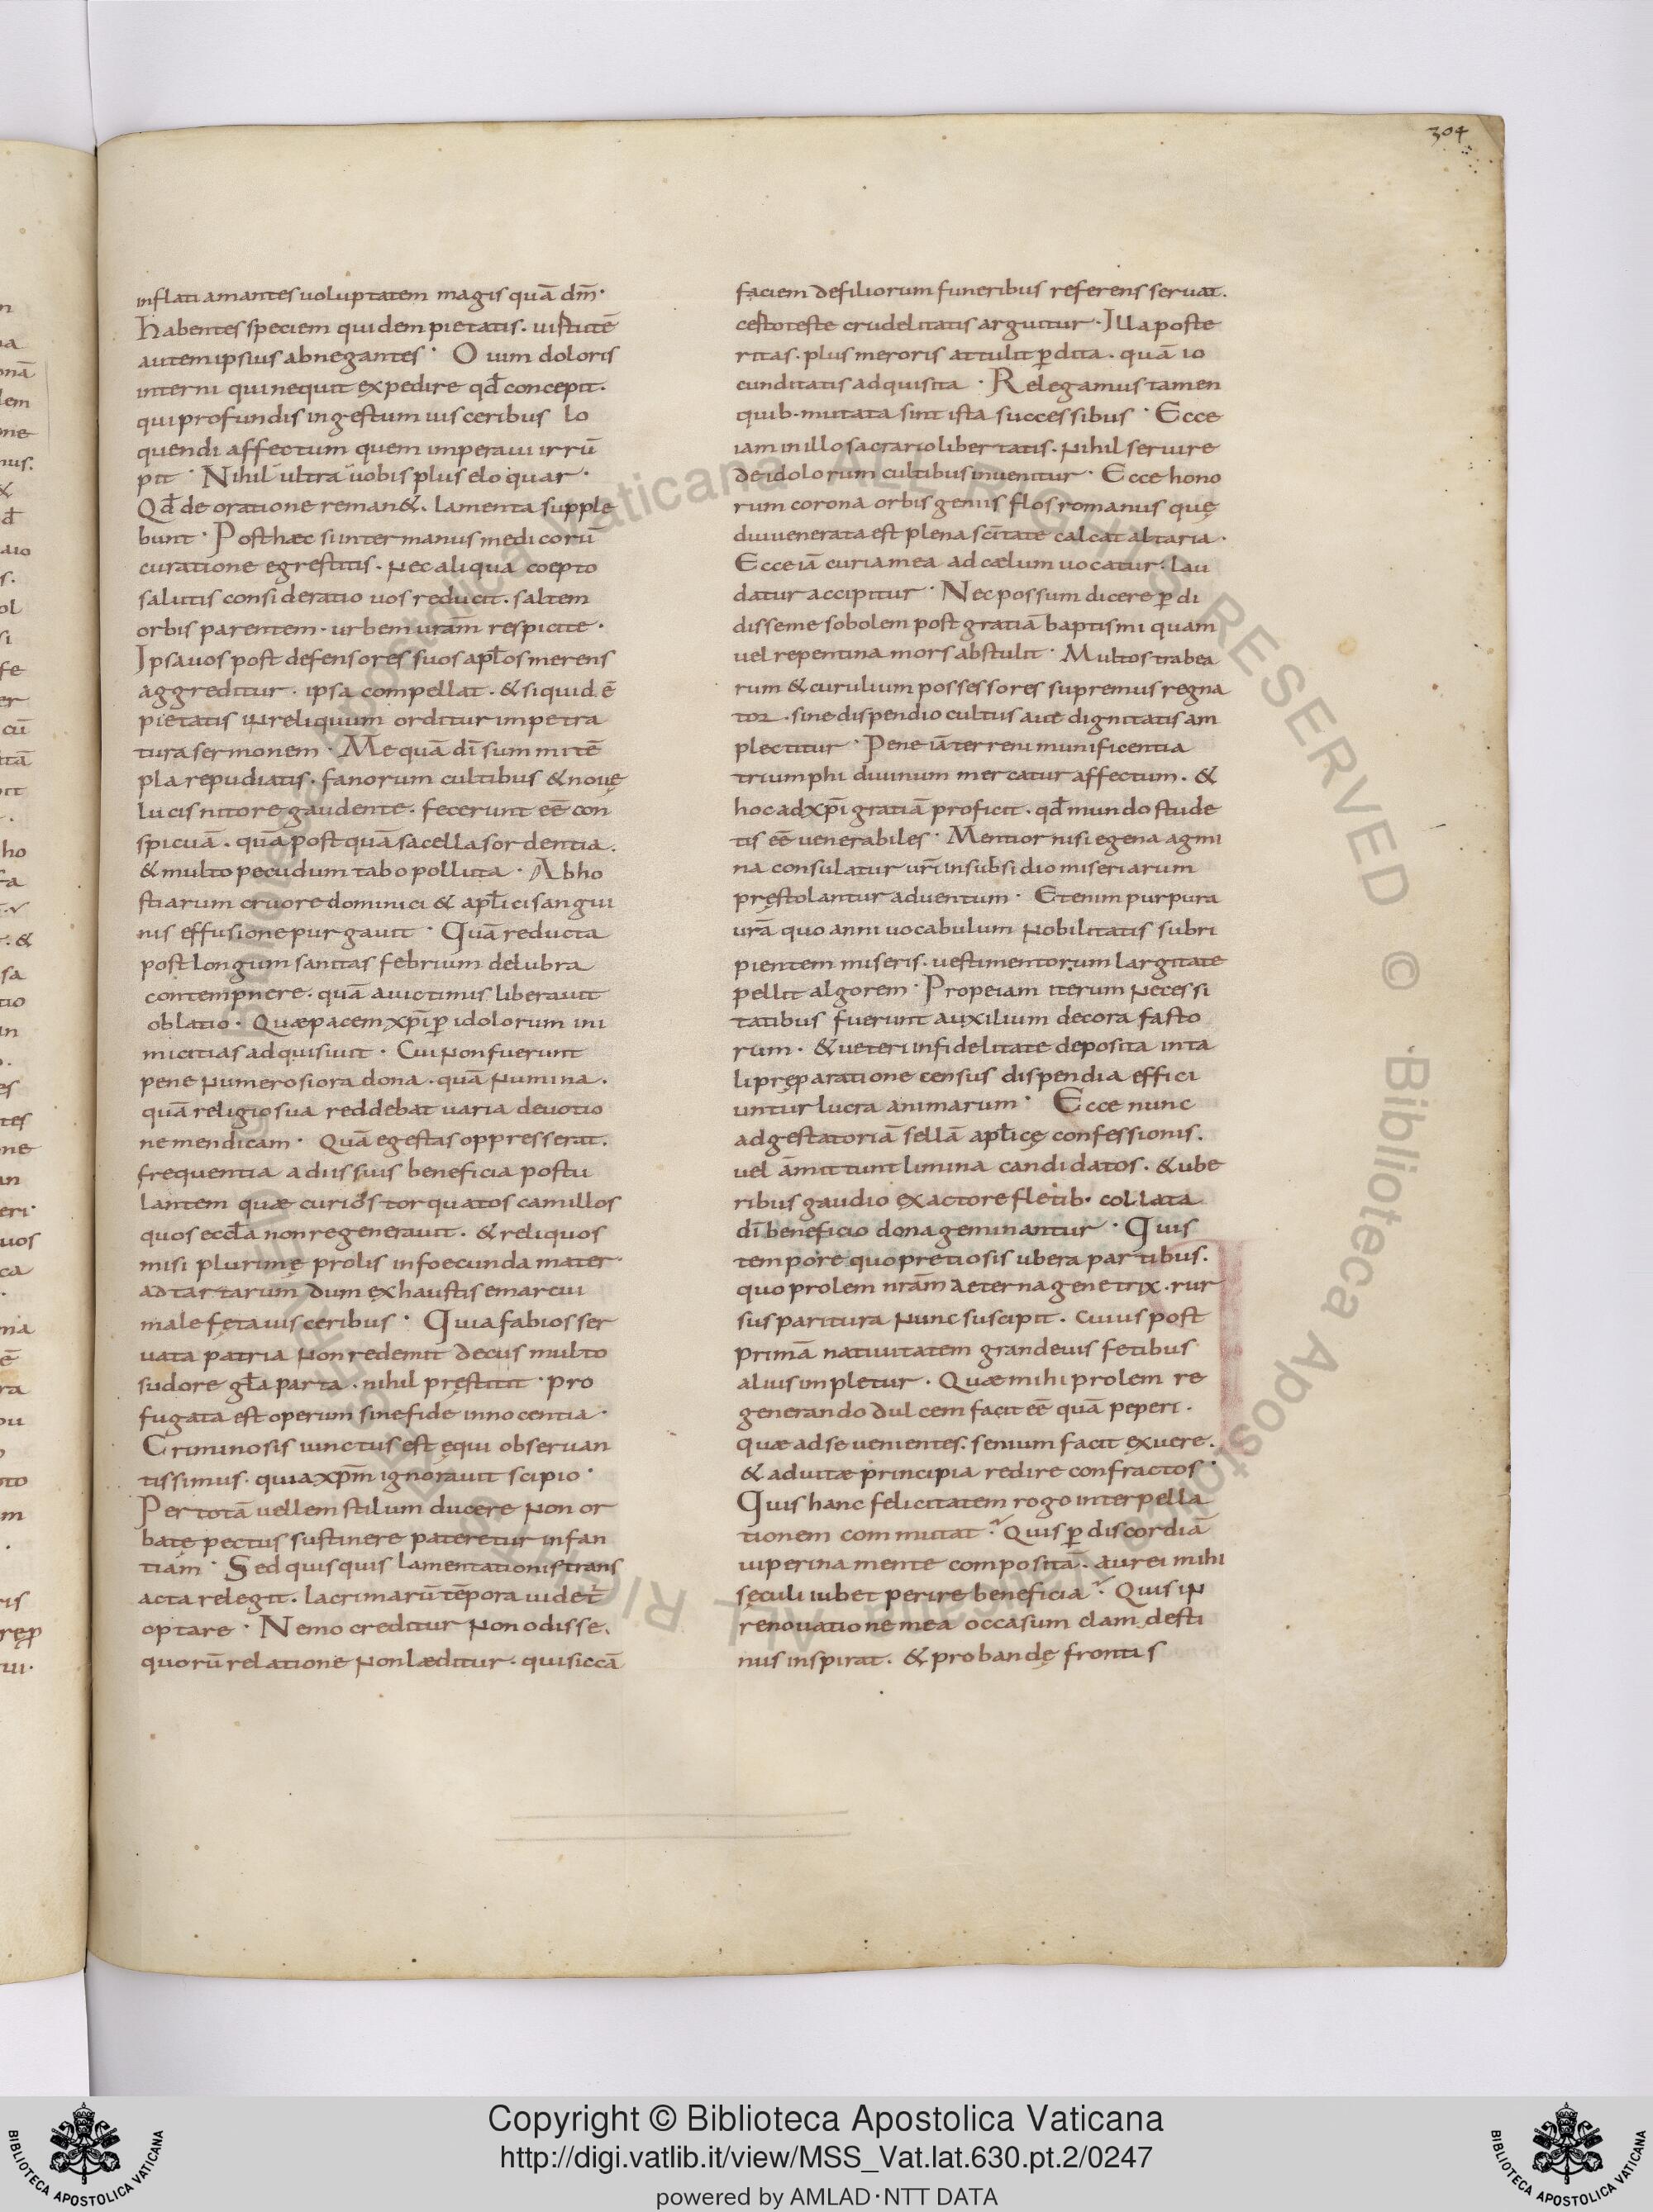 304
inflati amantes uoluptatem magis quā dm̄·
Habentes speciem quidem pietatis. uirtutē
autem ipsius abnegantes· O uim doloris
interni qui nequit expedire qd̄ concepit.
qui profundis ingestum uisceribus lo
quendi affectum quem imperaui irrū
pit· Nihil ultra uobis plus eloquar·
Qd̄ de oratione reman&. lamenta supple
bunt· Posthæc si inter manus medicorū
curatione egrestitis. Nec aliqua coepto
salutis consideratio uos reducit. saltem
orbis parentem. urbem urām respicite·
Ipsa uos post defensores suos apl̄os merens
aggreditur. ipsa compellat. & si quid ē
pietatis in reliquum orditur impetra
tura sermonem· Me quā dī summi tē
pla repudiatis. fanorum cultibus & nouę
lucis nitore gaudente. fecerunt eē con
spicuā. quā post quā sacella sordentia.
& multo pecudum tabo polluta· Ab ho
stiarum cruore dominici & apl̄ici sangui
nis effusione purgauit· Quā reducta
post longum sanitas febrium delubra
contempnere. quā a uictimis liberauit
oblatio. Quæ pacem xp̄i ꝑ idolorum ini
micitias adquisiuit. Cui Non fuerunt
pene Numerosiora dona. quā Numina.
quā religio sua reddebat uaria deuotio
ne mendicam· Quā egestas oppresserat.
frequentia a diis suis beneficia postu
lantem quæ curios torquatos camillos
quos eccl̄a non regenerauit. & reliquos
misi plurimę prolis infoecunda mater
ad tartarum dum exhaustis emarcui
male fęta uisceribus· Quia fabios ser
uata patria Non redemit decus multo
sudore gl̄a parta. nihil pręstitit· pro
fugata est operum sine fide innocentia·
Criminosis iunctus est ęqui obseruan
tissimus. quia xp̄m ignorauit scipio·
Per totā uellem stilum ducere Non or
batę pectus sustinere pateretur infan
tiam· Sed quisquis lamentationis trans
acta relegit. lacrimarū tēpora uidet̄
optare· Nemo creditur Non odisse.
quorū relatione Non læditur. qui siccā
faciem de filiorum funeribus referens seruat.
certo teste crudelitatis arguitur· Illa poste
ritas. plus meroris attulit ꝑdita. quā io
cunditatis adquisita· Relegamus tamen
quib· mutata sint ista successibus· Ecce
iam in illo sacrario libertatis. Nihil seruire
de idolorum cultibus inuenitur· Ecce hono
rum corona orbis genius flos romanus quę
diu uenerata est plena scītate calcat altaria.
Ecce iā curia mea ad cælum uocatur. lau
datur accipitur· Nec possum dicere ꝑdi
disse me sobolem post gratiā baptismi quam
uel repentina mors abstulit· Multos trabea
rum & curulium possessores supremus regna
tor. sine dispendio cultus aut dignitatis am
plectitur· Pene iā terreni munificentia
triumphi diuinum mercatur affectum. &
hoc ad xp̄i gratiā proficit. qd̄ mundo stude
tis eē uenerabiles· Mentior nisi egena agmi
na consulatur ur̄i in subsidio miseriarum
pręstolantur aduentum· Etenim purpura
urā quo anni uocabulum Nobilitatis subri
pientem miseris. uestimentorum largitate
pellit algorem· Prope iam iterum Necessi
tatibus fuerunt auxilium decora fasto
rum. & ueteri infidelitate deposita in ta
li pręparatione census dispendia effici
untur lucra animarum· Ecce nunc
ad gestatoriā sellā apl̄icę confessionis.
uel āmittunt limina candidatos. & ube
ribus gaudio exactore fletib· collata
dī beneficio dona geminantur· Quis
tempore quo pretiosis ubera partibus.
quo prolem nrām aeterna genetrix. rur
sus paritura Nunc suscipit. cuius post
primā natiuitatem grandeuis fetibus
aluis impletur. Quæ mihi prolem re
generando dulcem facit eē quā peperi.
quæ ad se uenientes. senium facit exuere.
& ad uitæ principia redire confractos·
Quis hanc felicitatem rogo interpella
tionem commutat? Quis ꝑ discordiā
uiperina mente compositā. aurei mihi
sęculi iubet perire beneficia? Quis in
renouatione mea occasum clamdesti
nus inspirat. & probandę frontis
Copyright © Biblioteca Apostolica Vaticana
http://digi.vatlib.it/view/MSS_Vat.lat.630.pt.2/0247
powered by AMLAD·NTT DATA